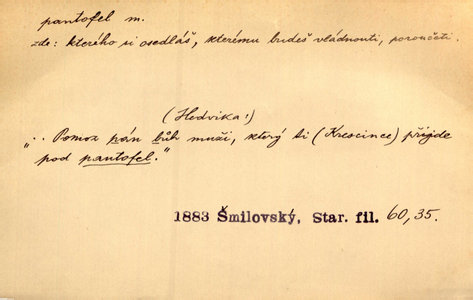 pantofel m.
zde: kterého si osedláš, kterému budeš vládnouti, poroučeti.
(Hedvika:)
„.. Pomoz pán bůh muži, který ti (Krescince) přijde
pod pantofel."
1883 Šmilovský, Star. fil. 60,35.